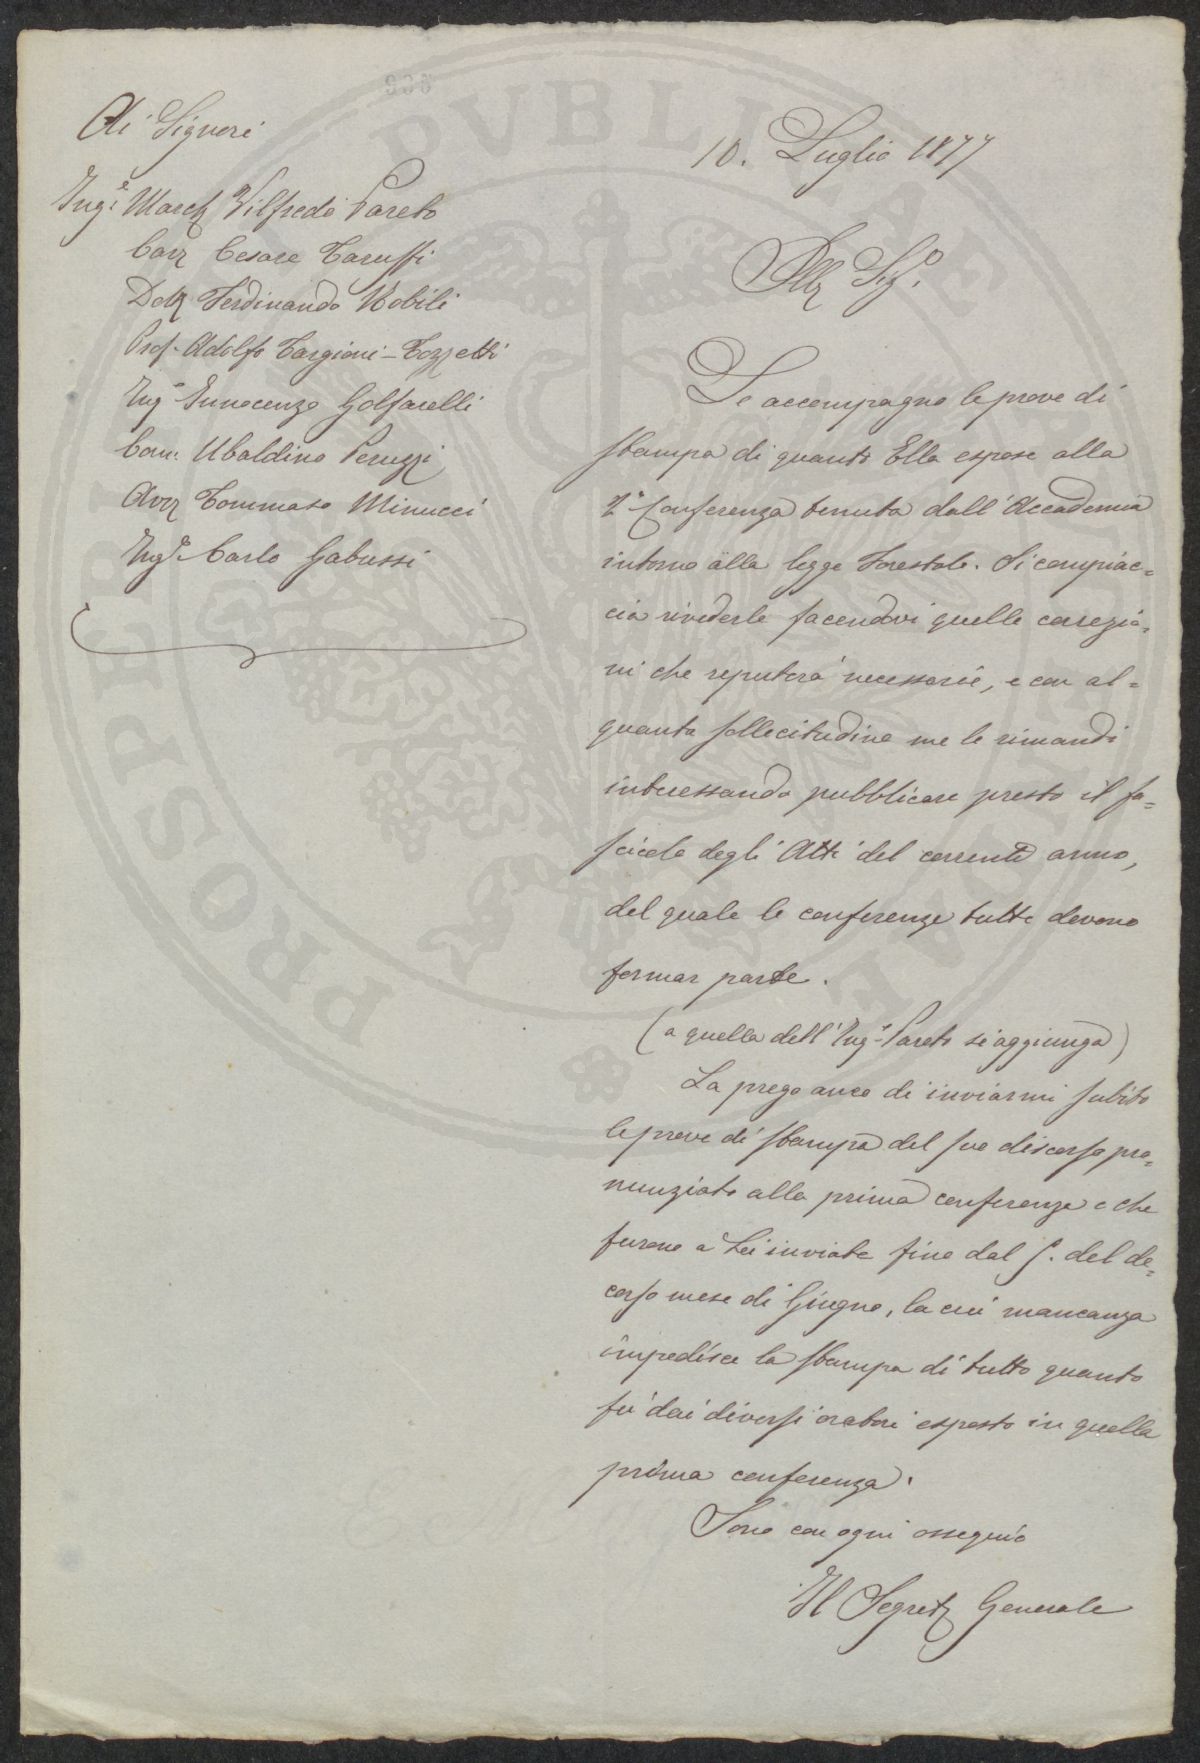 Ai Signori
Ing.e March Vilfredo Pareto
Cav Cesare Taruffi
Dott Ferdinando Nobili
Prof. Adolfo Targioni-Tozzetti
Ing.e Innocenzo Golfarelli
Com. Ubaldino Peruzzi
Avv Tommaso Minucci
Ing.e Carlo Gabussi
10. Luglio 1877
Ill Sig.
Le accompagno le prove di
stampa di quanto Ella espose alla
2a Conferenza tenuta dall'Accademia
intorno alla legge Forestale. Si compiac=
cia rivederle facendovi quelle correzio=
ni che reputerà necessarie, e con al=
quanta sollecitudine me le rimandi
interessando pubblicare presto il fa=
scicolo degli Atti del corrente anno,
del quale le conferenze tutte devono
formar parte.
(a quella dell'Ing.e Pareto si aggiunga)
La prego anco di inviarmi subito
le prove di stampa del suo discorso pro=
nunziato alla prima conferenza e che
furono a Lei inviate fino dal 5. del de=
corso mese di Giugno, la cui mancanza
impedisce la stampa di tutto quanto
fu dai diversi oratori esposto in quella
prima conferenza.
Sono con ogni ossequio
Il Segret Generale
PVBLICAE
PROSPERITATI